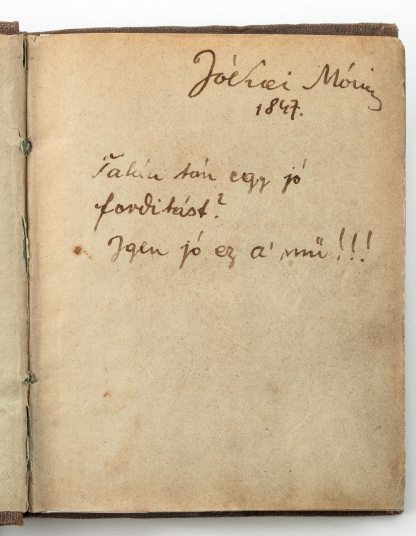 Jókai Móric
1847.
Talán tán egy jó
forditást?
Igen jó ez a' mű!!!